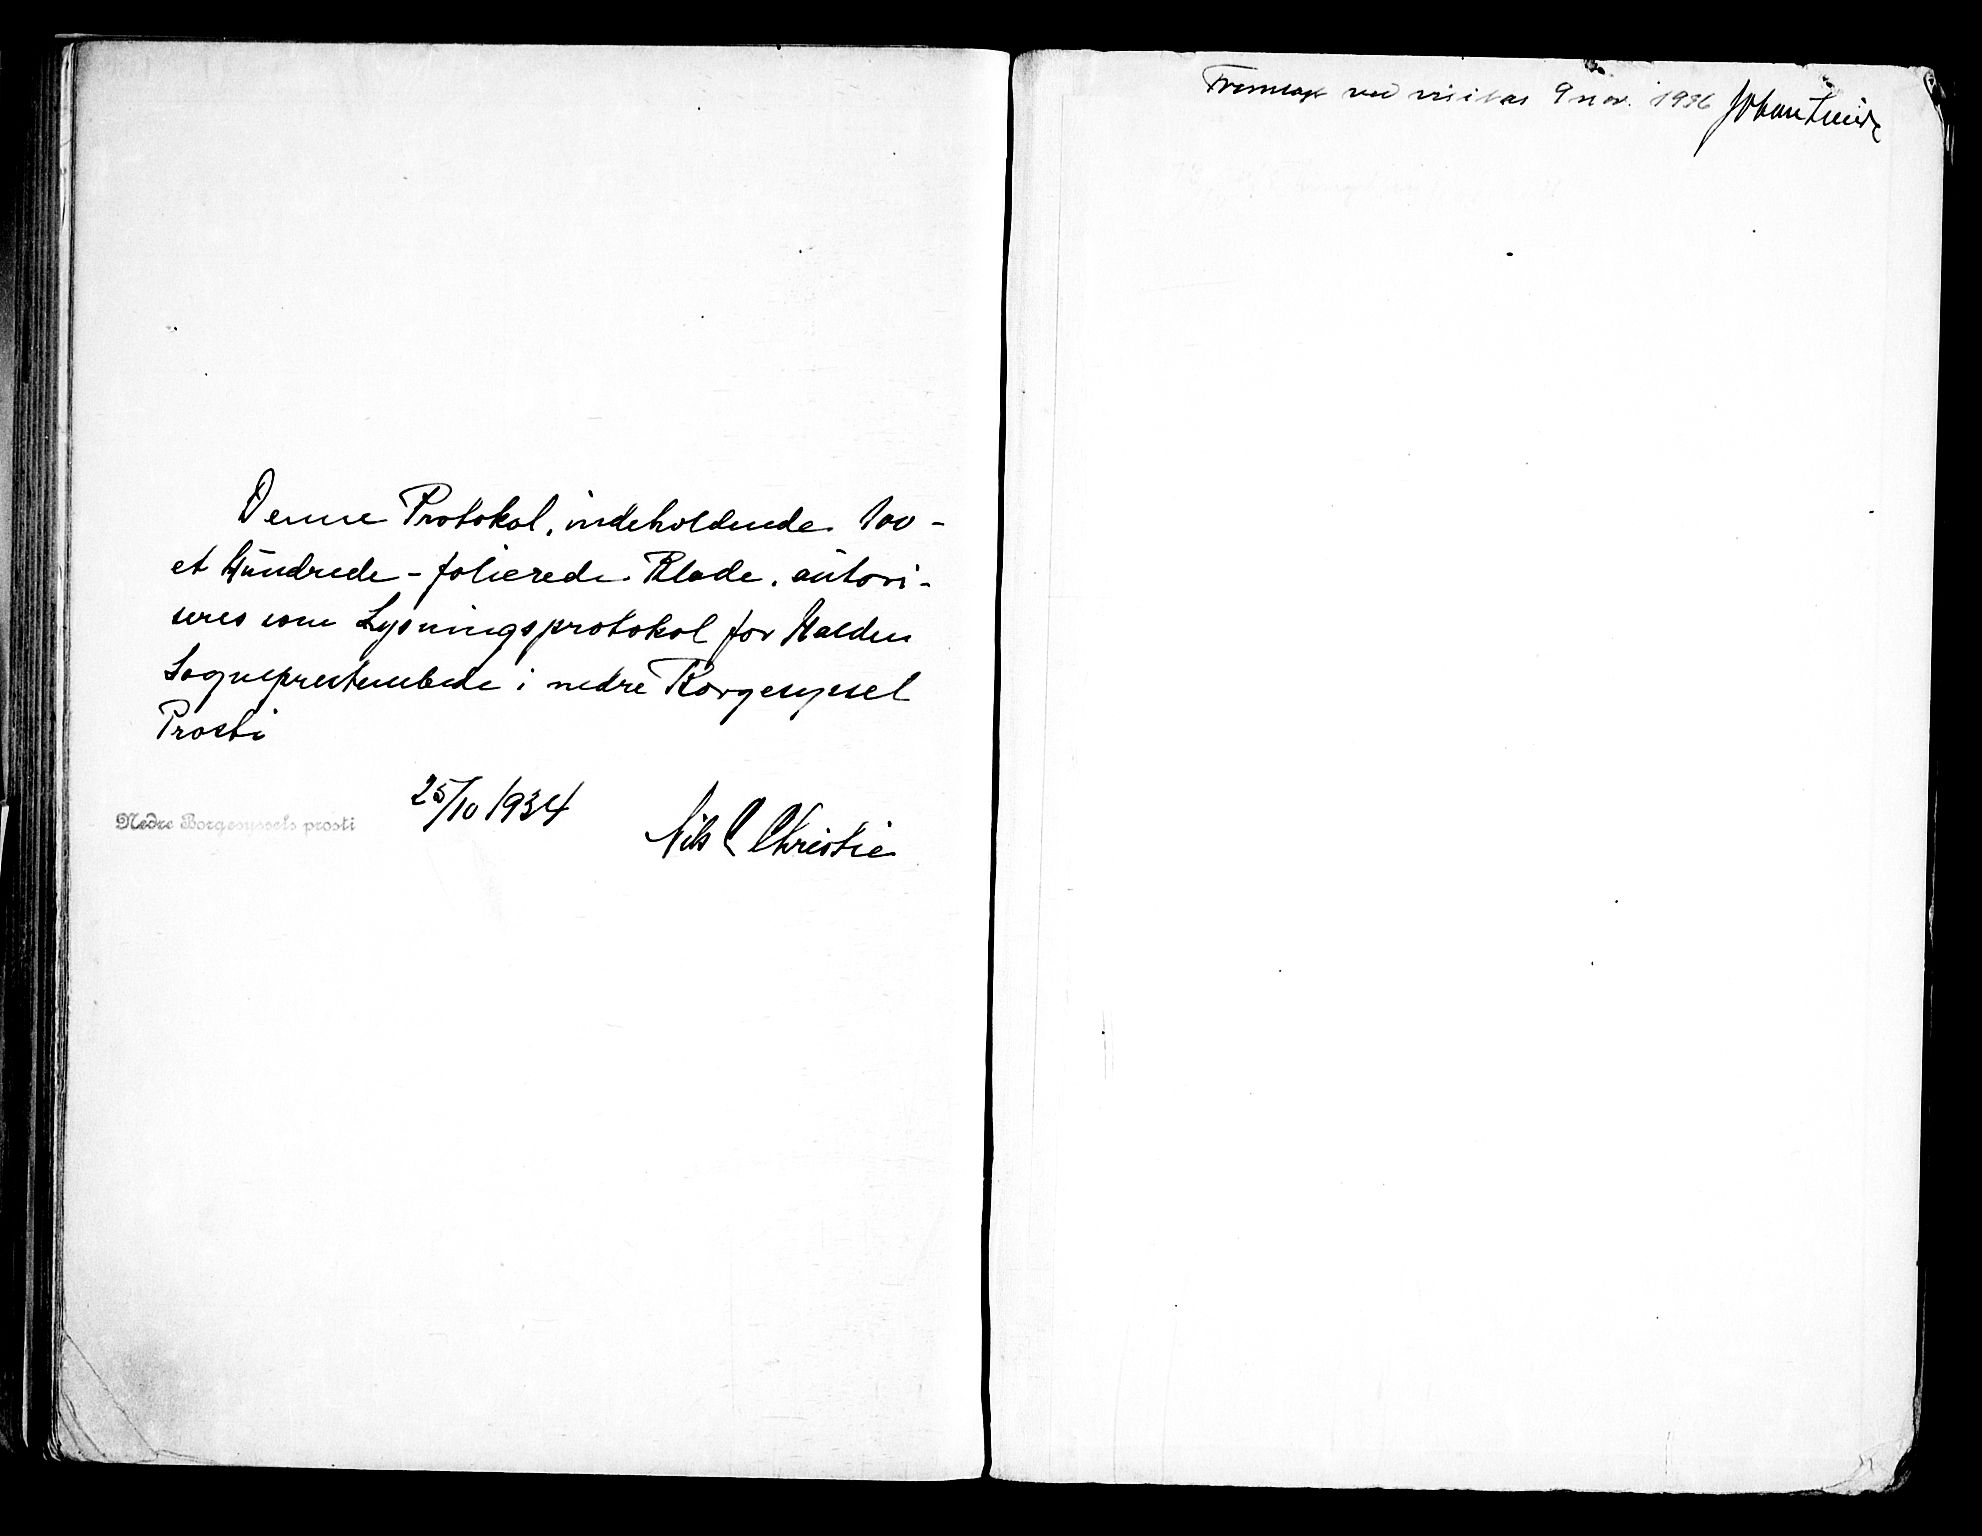 Denne Protokol, indeholdende 100 -
et Hundrede - folierede Blade, autori-
seres som Lysningsprotokol for Halden
Sogneprestembede i nedre Borgesyssel
Prosti
25/10 1934
Nils C Christie
Nedre Borgesyssels prosti
Fremlagt ved visitas 9 nov. 1936 Johan Lunde